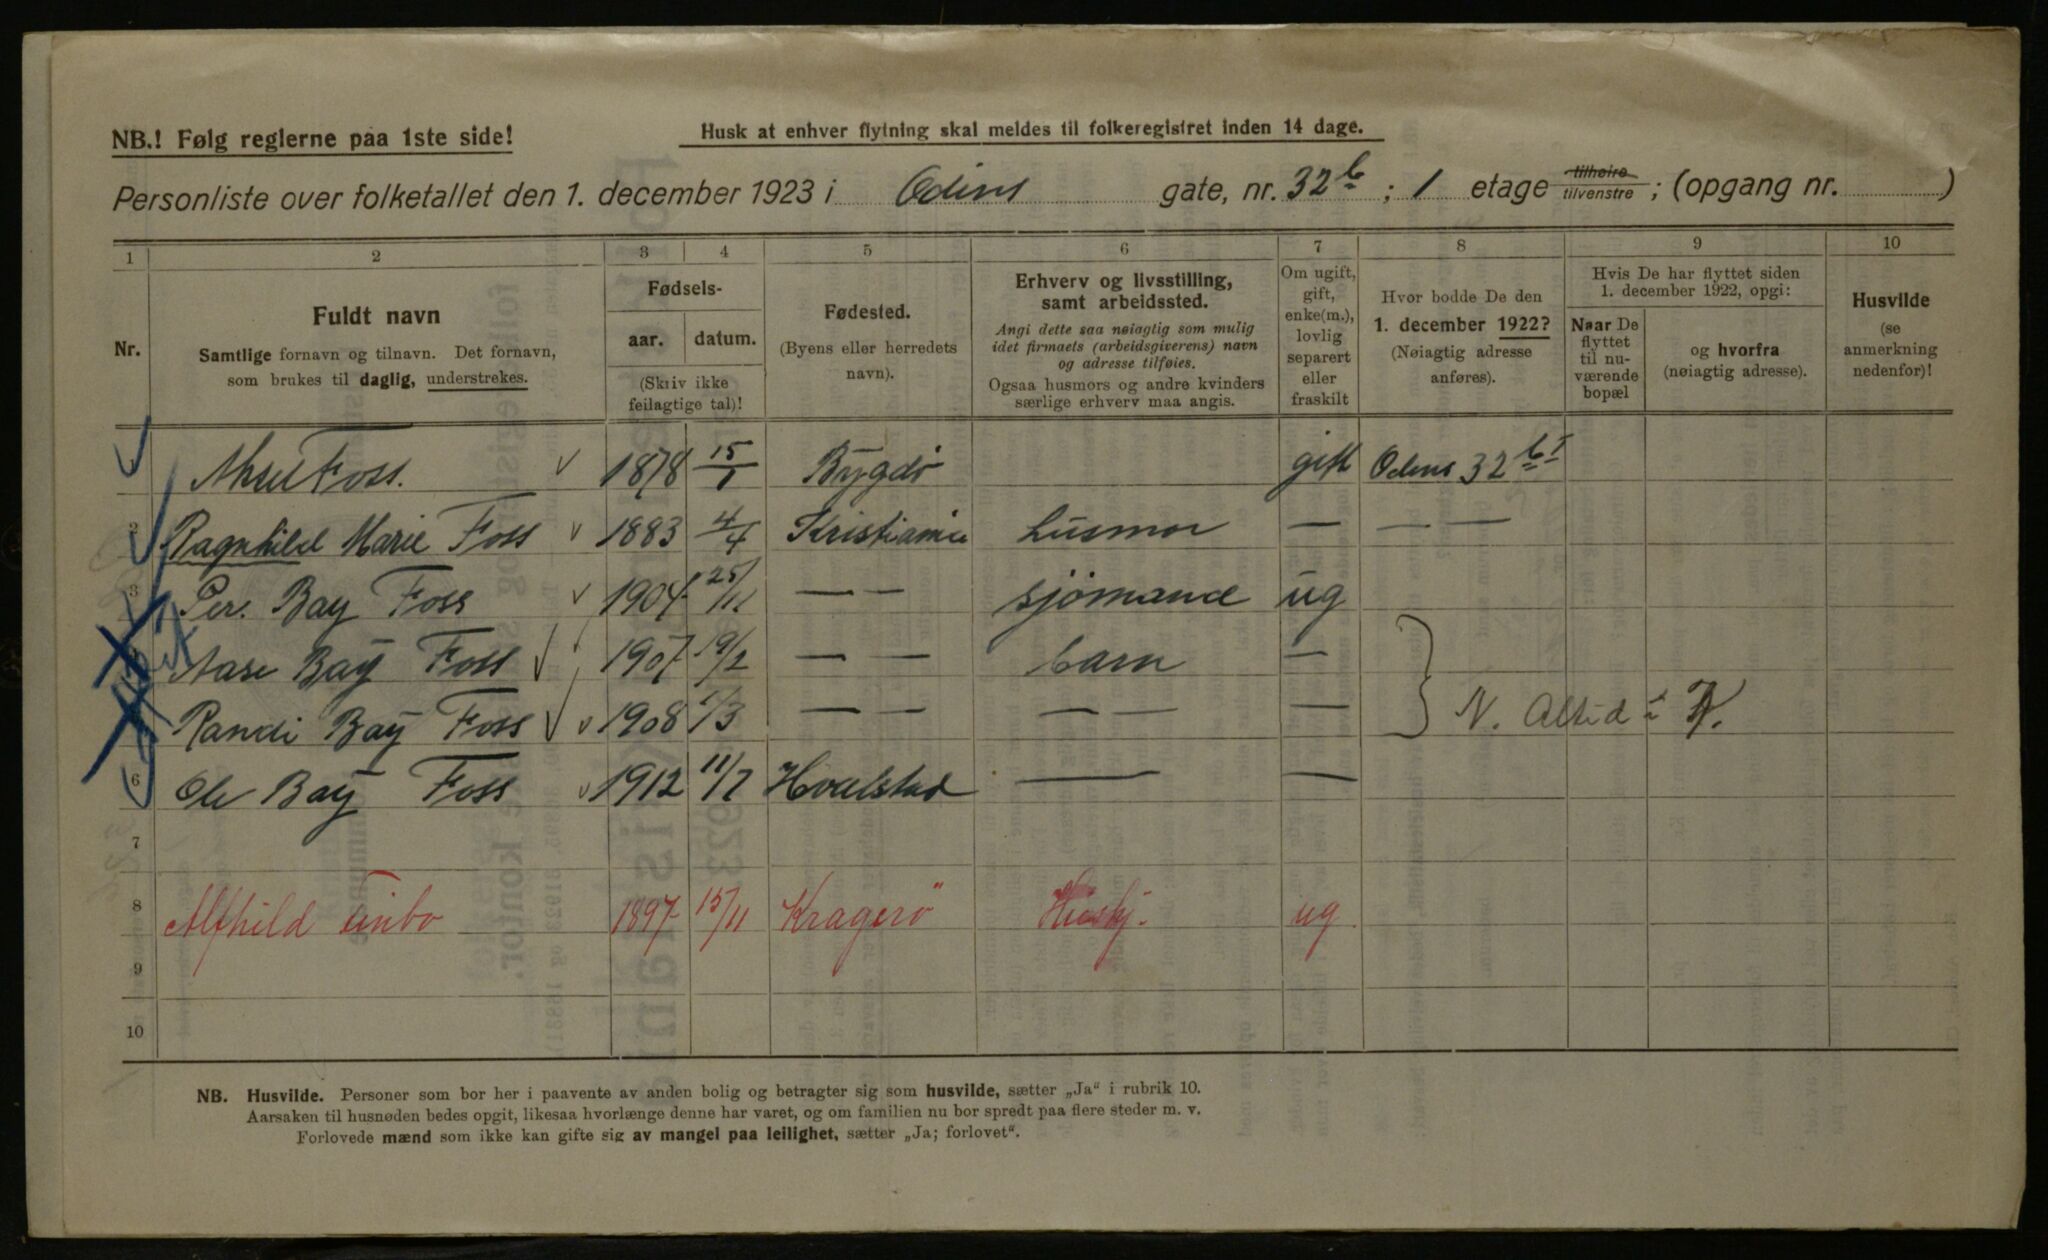 NB.! Følg reglerne paa 1ste side!
Husk at enhver flytning skal meldes til folkeregistret inden 14 dage.
Personliste over folketallet den 1. december 1923 i Odins gate, nr. 32b ; 1 etage tilhøire tilvenstre ; (opgang nr. )
1 2 3 4 5 6 7 8 9 10
Nr.
Fuldt navn
Samtlige fornavn og tilnavn. Det fornavn,
som brukes til daglig, understrekes.
Fødsels-
aar. datum.
(Skriv ikke
feilagtige tal)!
Fødested.
(Byens eller herredets
navn).
Erhverv og livsstilling,
samt arbeidssted.
Angi dette saa nøiagtig som mulig
idet firmaets (arbeidsgiverens) navn
og adresse tilføies.
Ogsaa husmors og andre kvinders
særlige erhverv maa angis.
Om ugift,
gift,
enke(m.),
lovlig
separert
eller
fraskilt
Hvor bodde De den
1. december 1922?
(Nøiagtig adresse
anføres).
Hvis De har flyttet siden
1. december 1922, opgi:
Naar De
flyttet
til nu-
værende
bopæl
og hvorfra
(nøiagtig adresse).
Husvilde
(se
anmerkning
nedenfor)!
Foss. 1878 15/1 Bygdö gift Odins 32 b I
2 Ragnhild Marie Foss 1883 4/4 Kristiania husmor — — —
3 Per. Bay Foss 1904 25/11 — — sjömand ug
Aase Bay Foss 1907 19/2 — — barn —
Randi Bay Foss 1908 1/3 — — — — — N. Altid i K.
6 Ole Bay Foss 1912 11/7 — —
7
8 Alfhild 1897 15/11 Kragerö Hushj. ug.
9
10
NB. Husvilde. Personer som bor her i paavente av anden bolig og betragter sig som husvilde, sætter „Ja“ i rubrik 10.
Aarsaken til husnøden bedes opgit, likesaa hvorlænge denne har varet, og om familien nu bor spredt paa flere steder m. v.
Forlovede mænd som ikke kan gifte sig av mangel paa leilighet, sætter „Ja; forlovet“.